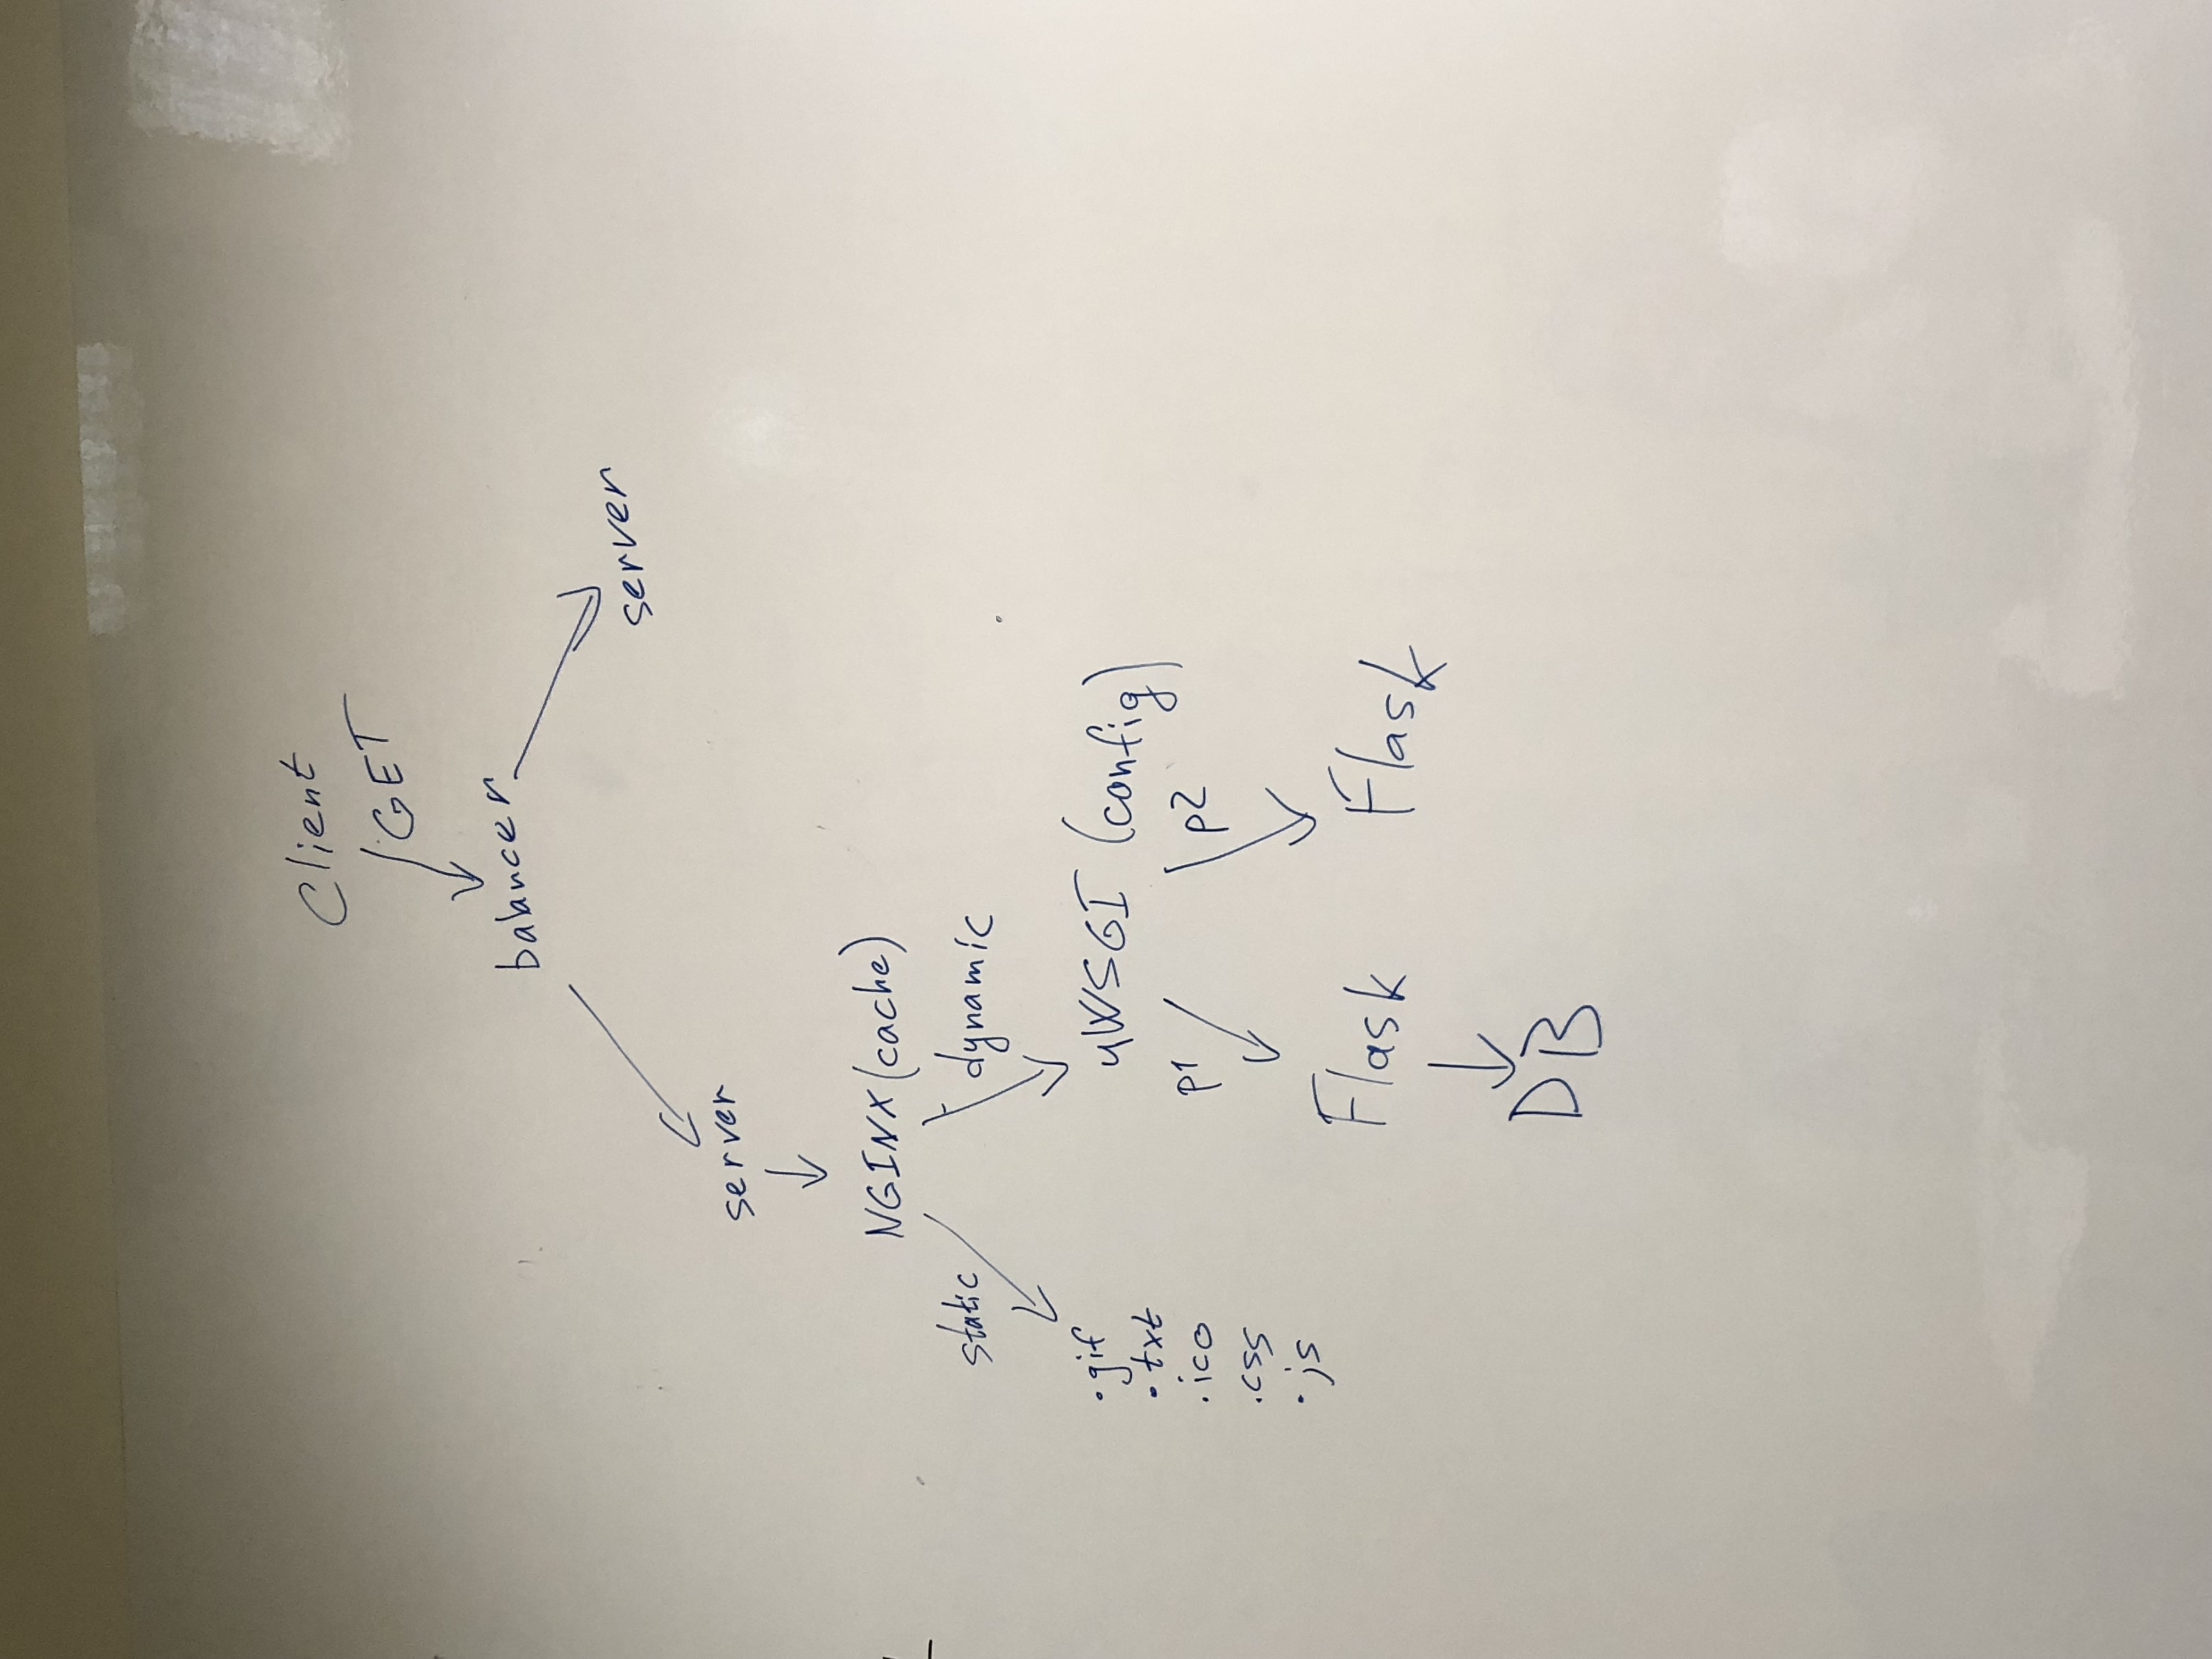 Client
GET
balancer
server
server
NGINX (cache)
static
dynamic
.gif
.txt
.ico
.css
.js
uWSGI (config)
p1
p2
Flask
Flask
DB